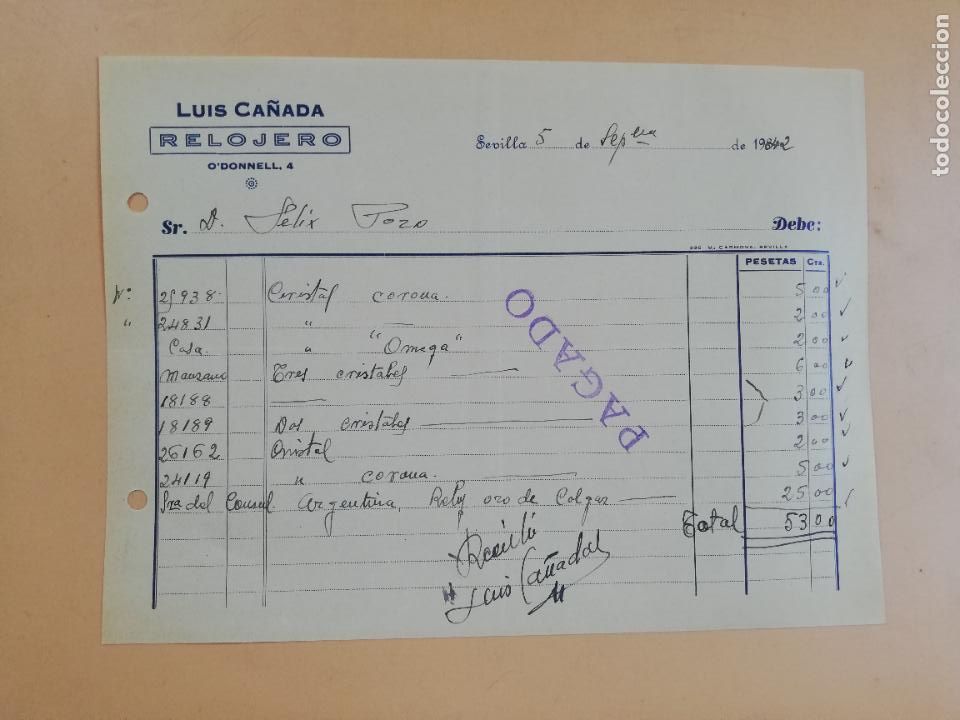 LUIS CAÑADA
RELOJERO
O'DONNELL, 4
Sevilla 5 de Sepbre de 1942
Sr. D. Felix Pozo Debe:
PESETAS Cts.
Nº 25938 Cristal corona. 5 00
" 24831 " — 2 00
Casa " "Omega" 2 00
Manzano Tres cristales 6 00
18188 — 3 00
18189 Dos cristales 3 00
26162 Cristal 2 00
24119 " corona. 5 00
Sra del Consul Argentina, Reloj oro de Colgar 25 00
Total 53 00
PAGADO
Recibí
Luis Cañada
todocoleccion